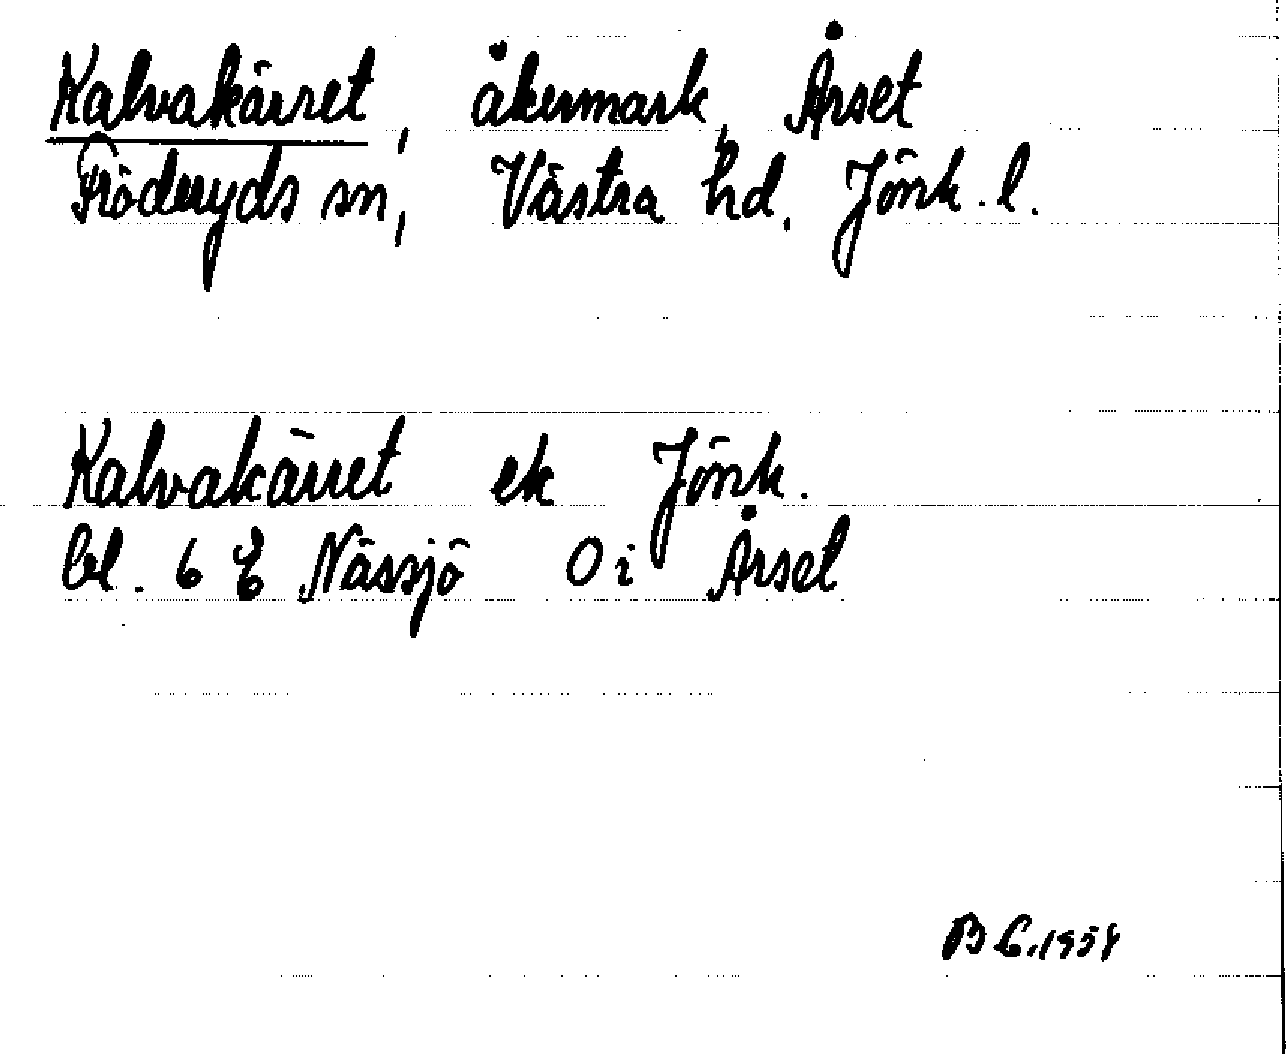 Kalvakärret, åkermark, Årset
Fröderyds sn, Västra hd. Jönk. l.
Kalvakärret ek Jönk.
bl. 6 E Nässjö Oi Årset
B C. 1954